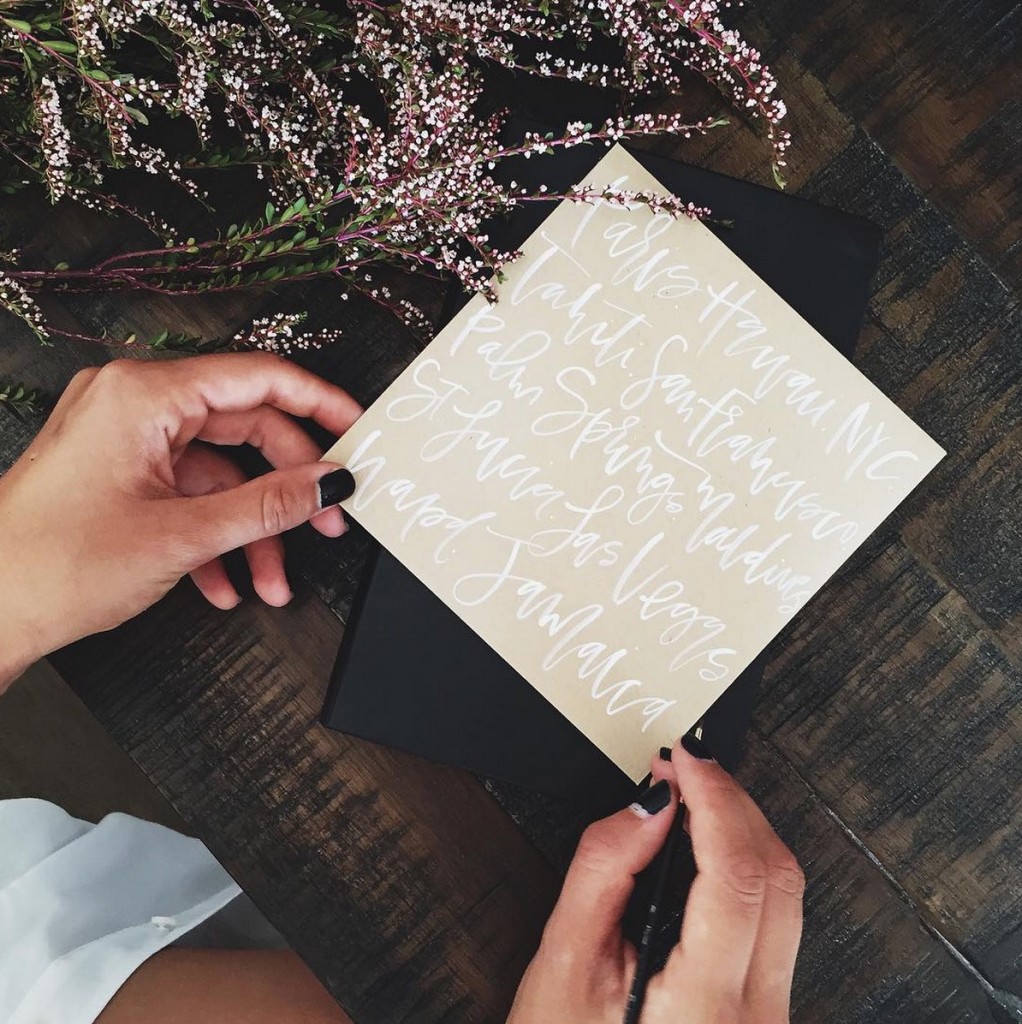 Paris Hawaii. NYC.
Tahiti. San Francisco
Palm Springs. Maldives
St. Lucia. Las Vegas
Napa. Jamaica